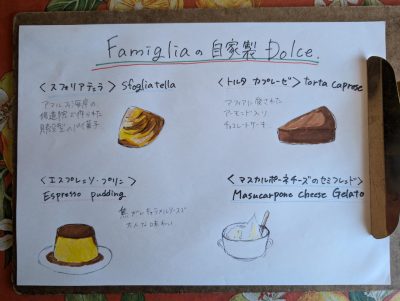 Famigliaの自家製 Dolce.
<スフォリアテッラ> Sfogliatella
アマルフィ海岸の
修道院で作られた
貝殻型のパイ菓子
<トルタ カプレーゼ> torta caprese
アーモンド入り
チョコレートケーキ
<エスプレッソ・プリン>
Espresso pudding
焦がしキャラメルソースで
大人な味わい
<マスカルポーネチーズのセミフレッド>
Mascarpone cheese Gelato